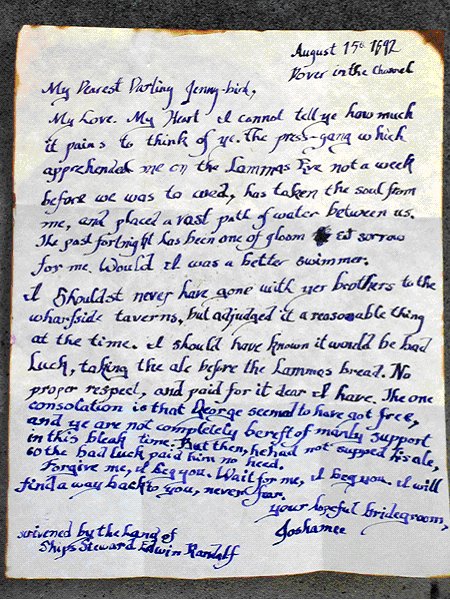 August 15th 1692
Dover in the Channel
My Dearest Darling Jenny-bird,
My Love. My Heart I cannot tell ye how much
it pains to think of ye. The press-gang which
apprehended me on the Lammas Eve not a week
before we was to wed, has taken the soul from
me, and placed a vast path of water between us.
The past fortnight has been one of gloom & sorrow
for me. Would I was a better swimmer.
I Shouldst never have gone with yer brothers to the
wharfside taverns, but adjudged it a reasonable thing
at the time. I should have known it would be bad
Luck, taking the ale before the Lammas bread. No
proper respect, and paid for it dear I have. The one
consolation is that George seemed to have got free,
and ye are not completely bereft of manly support
in this bleak time. But then, he had not supped his ale,
so the bad luck paid him no heed.
Forgive me, I beg you. Wait for me, I beg you. I will
find a way back to you, never fear.
your hopeful bridegroom,
Joshamee
scrivened by the hand of
Ships Steward Edwin Randalf